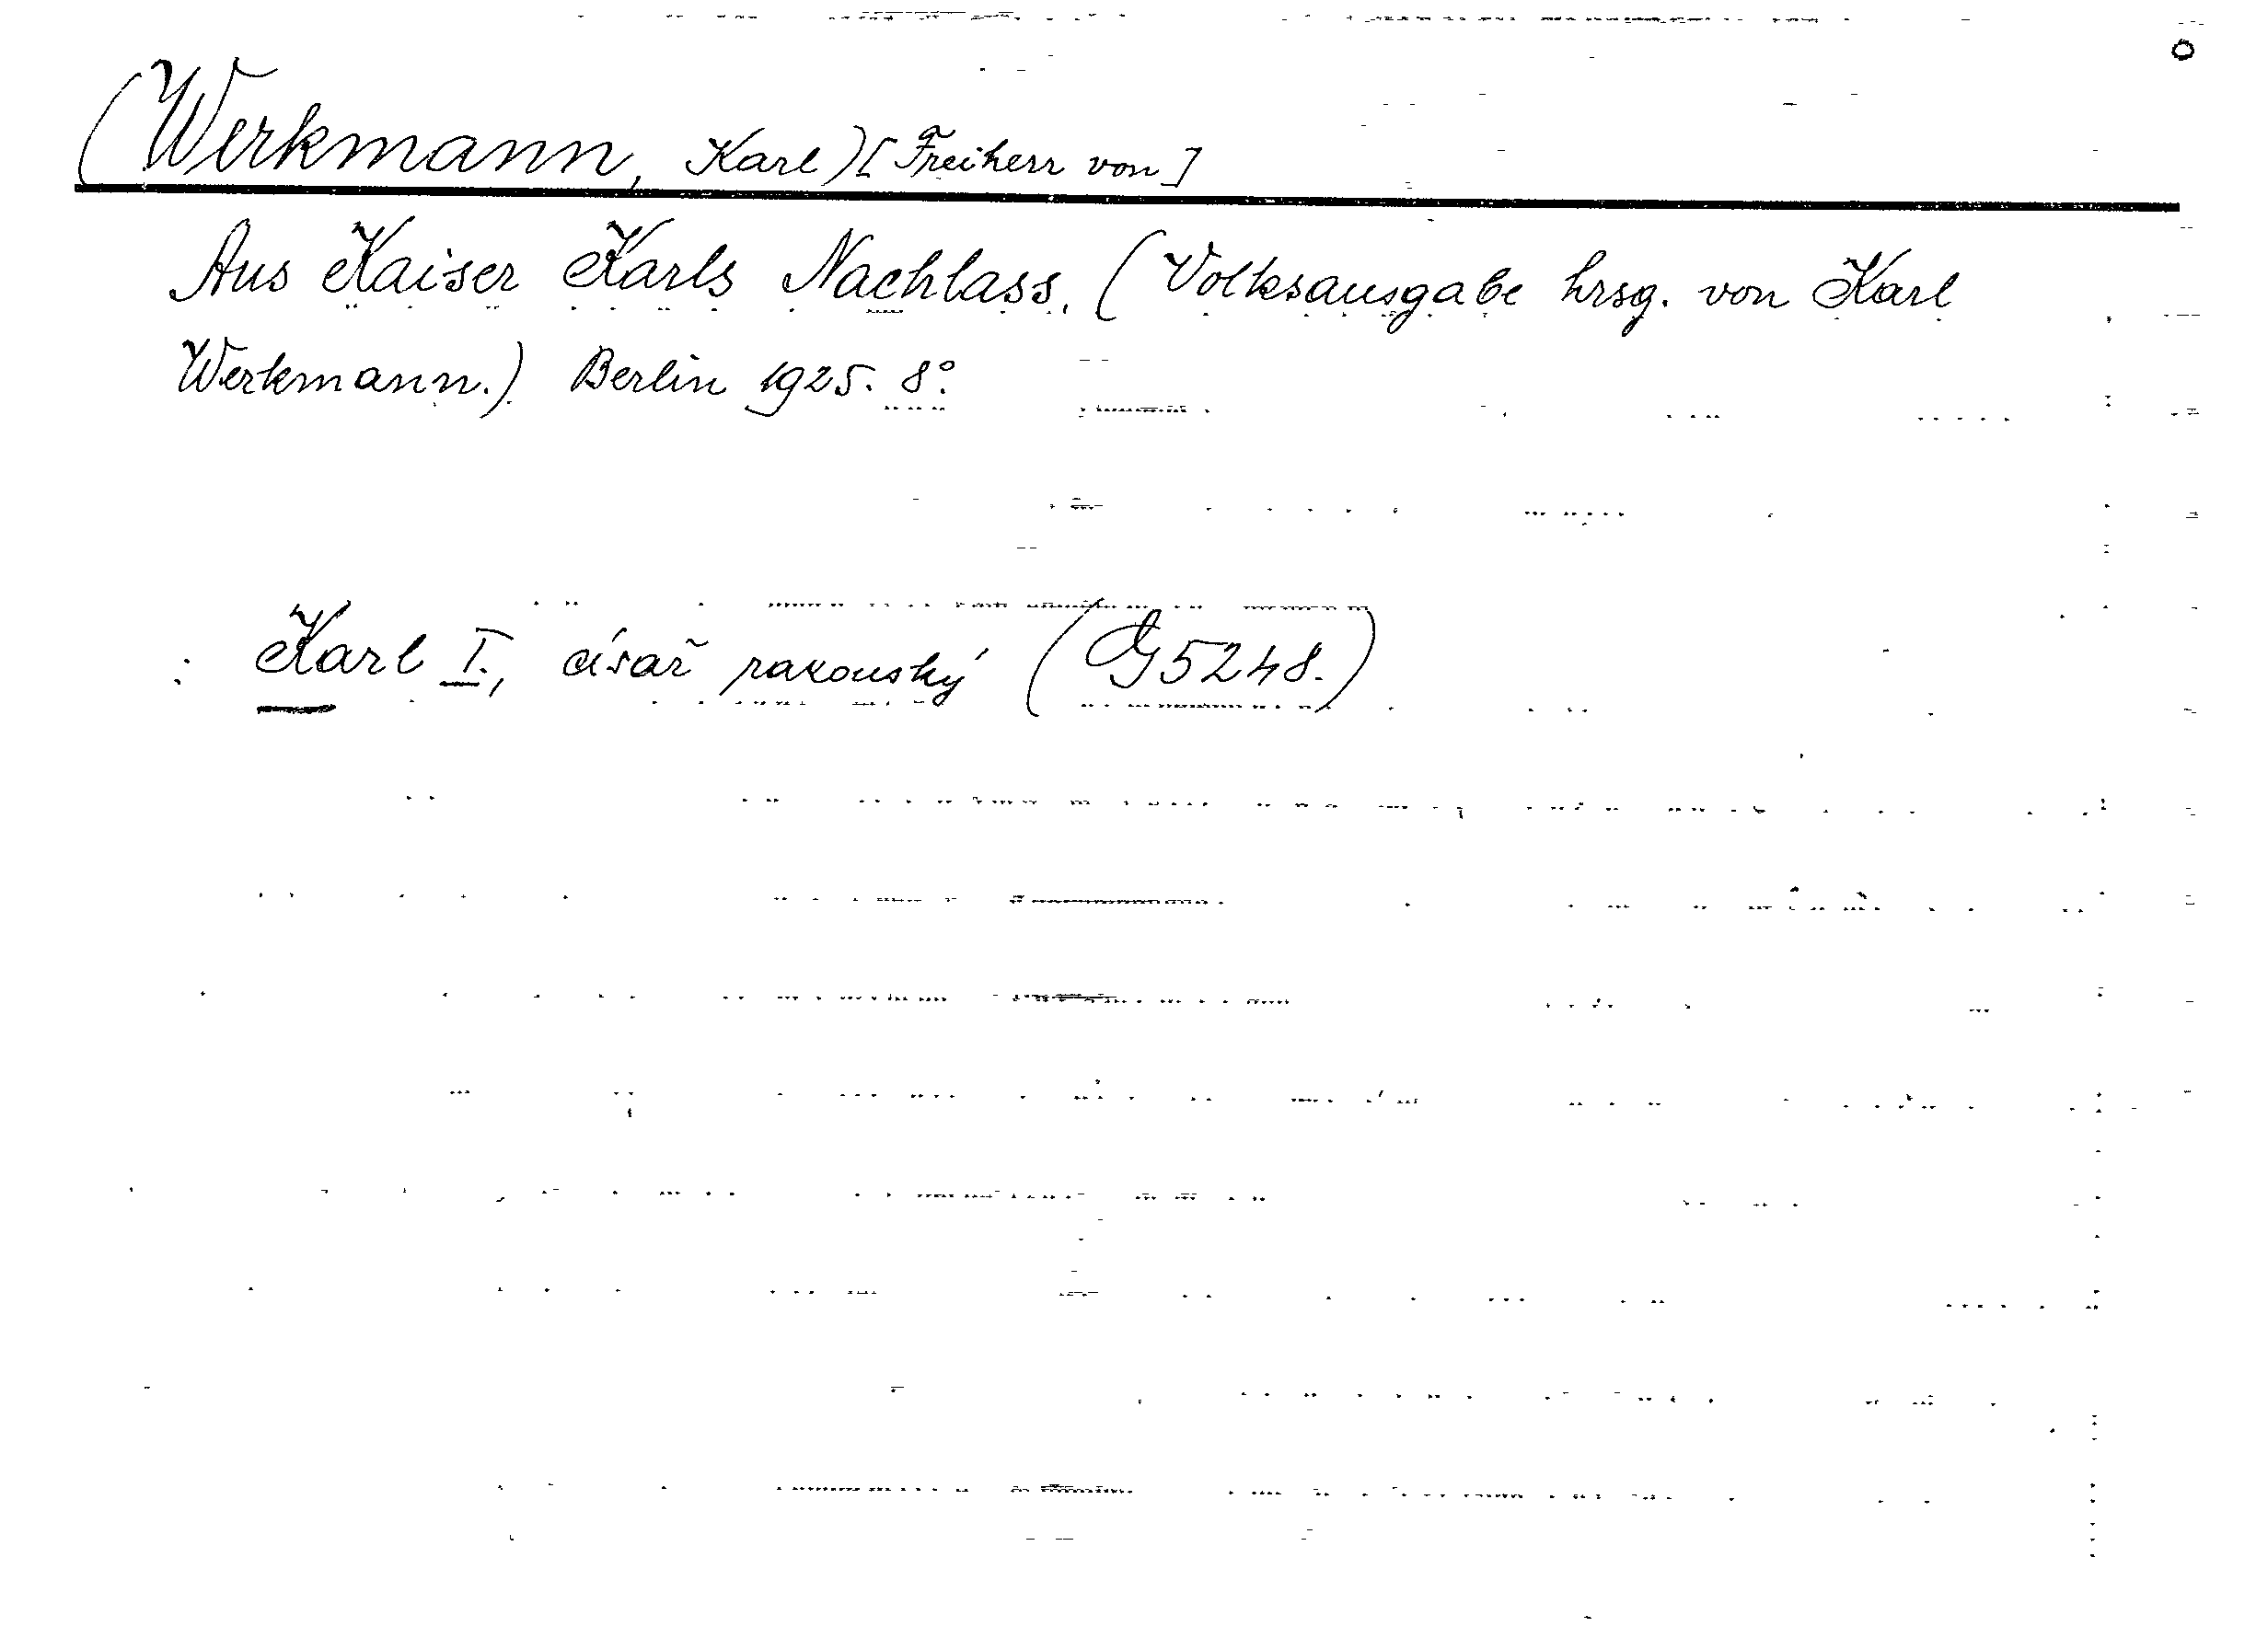 (Werkmann, Karl) [Freiherr von]
Aus Kaiser Karls Nachlass. (Volksausgabe hrsg. von Karl
Werkmann.) Berlin 1925. 8°.
: Karl I., císař rakouský (G 5248.)